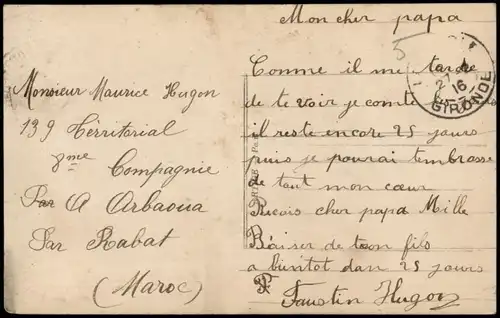 Mon cher papa
Comme il me tarde
de te voir je compte
il reste encore 25 jours
puis je pourai tembrasse
de tout mon cœur
Recois cher papa Mille
Baiser de toon fils
a bientot dan 25 jours
Faustin Hugon
Monsieur Maurice Hugon
139 Térritorial
8me Compagnie
Par A Arbaoua
Par Rabat
(Maroc)
27
16
GIRONDE